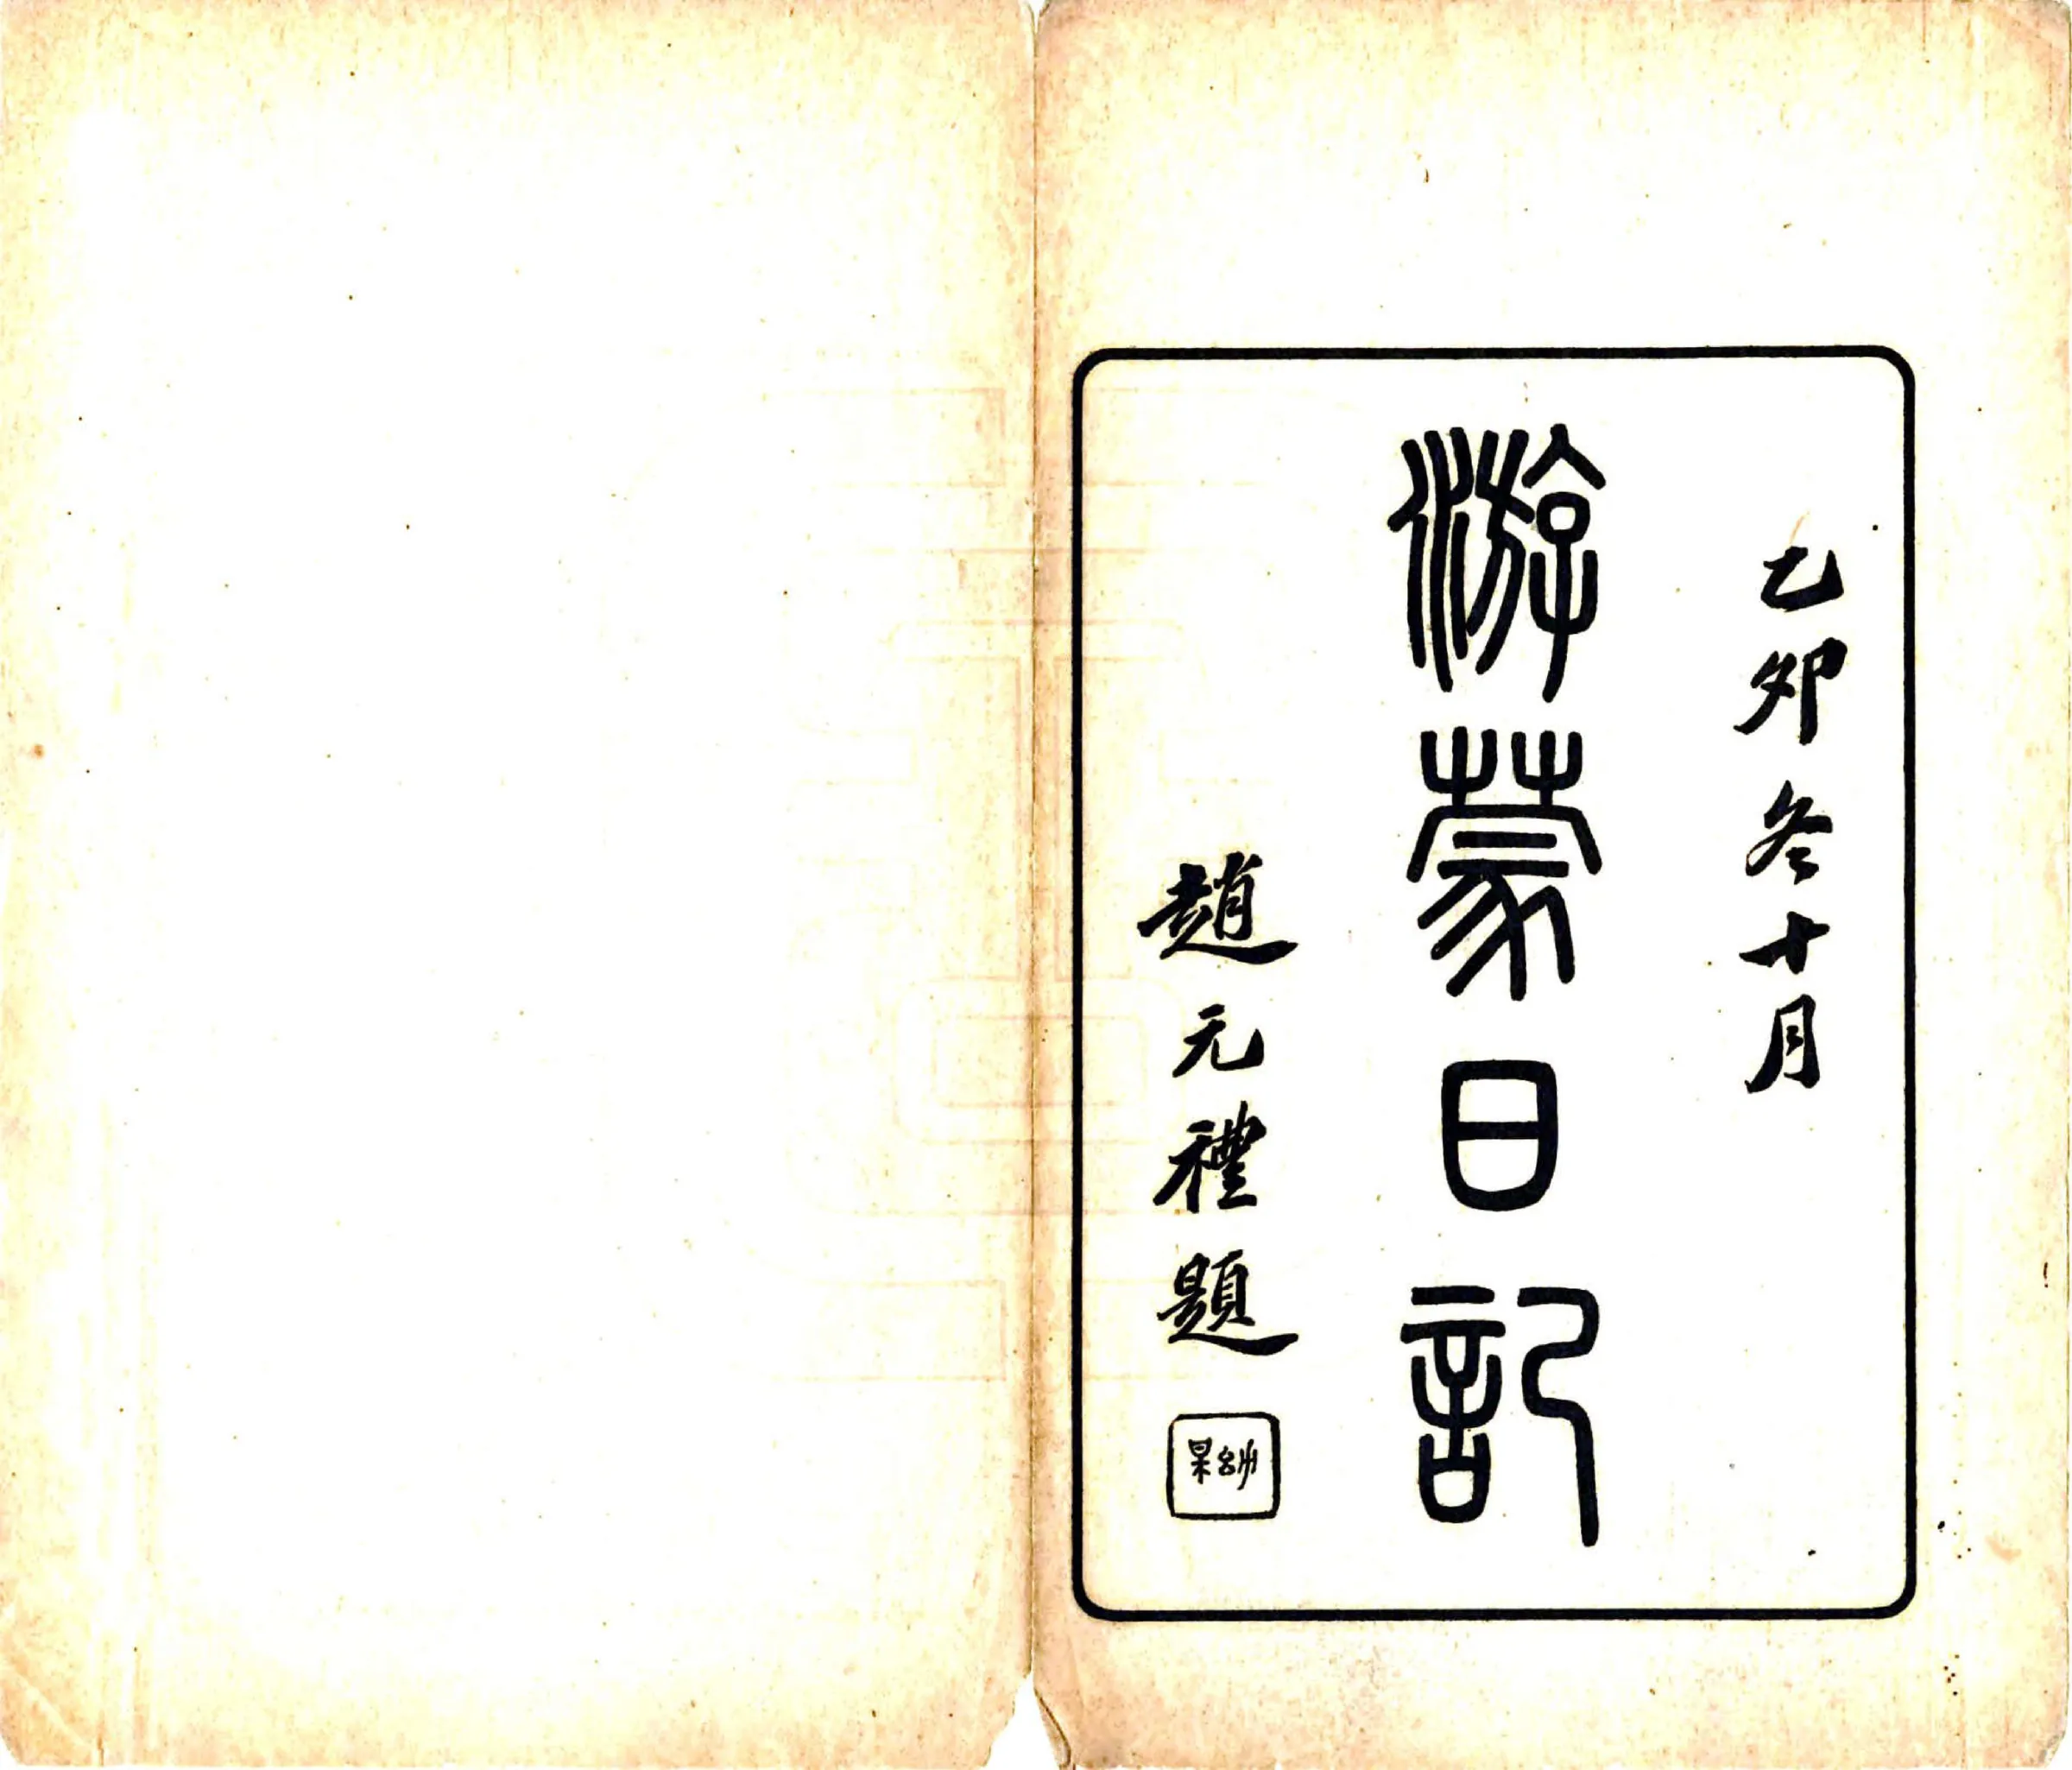 乙卯冬十月
游蒙日記
趙元禮題